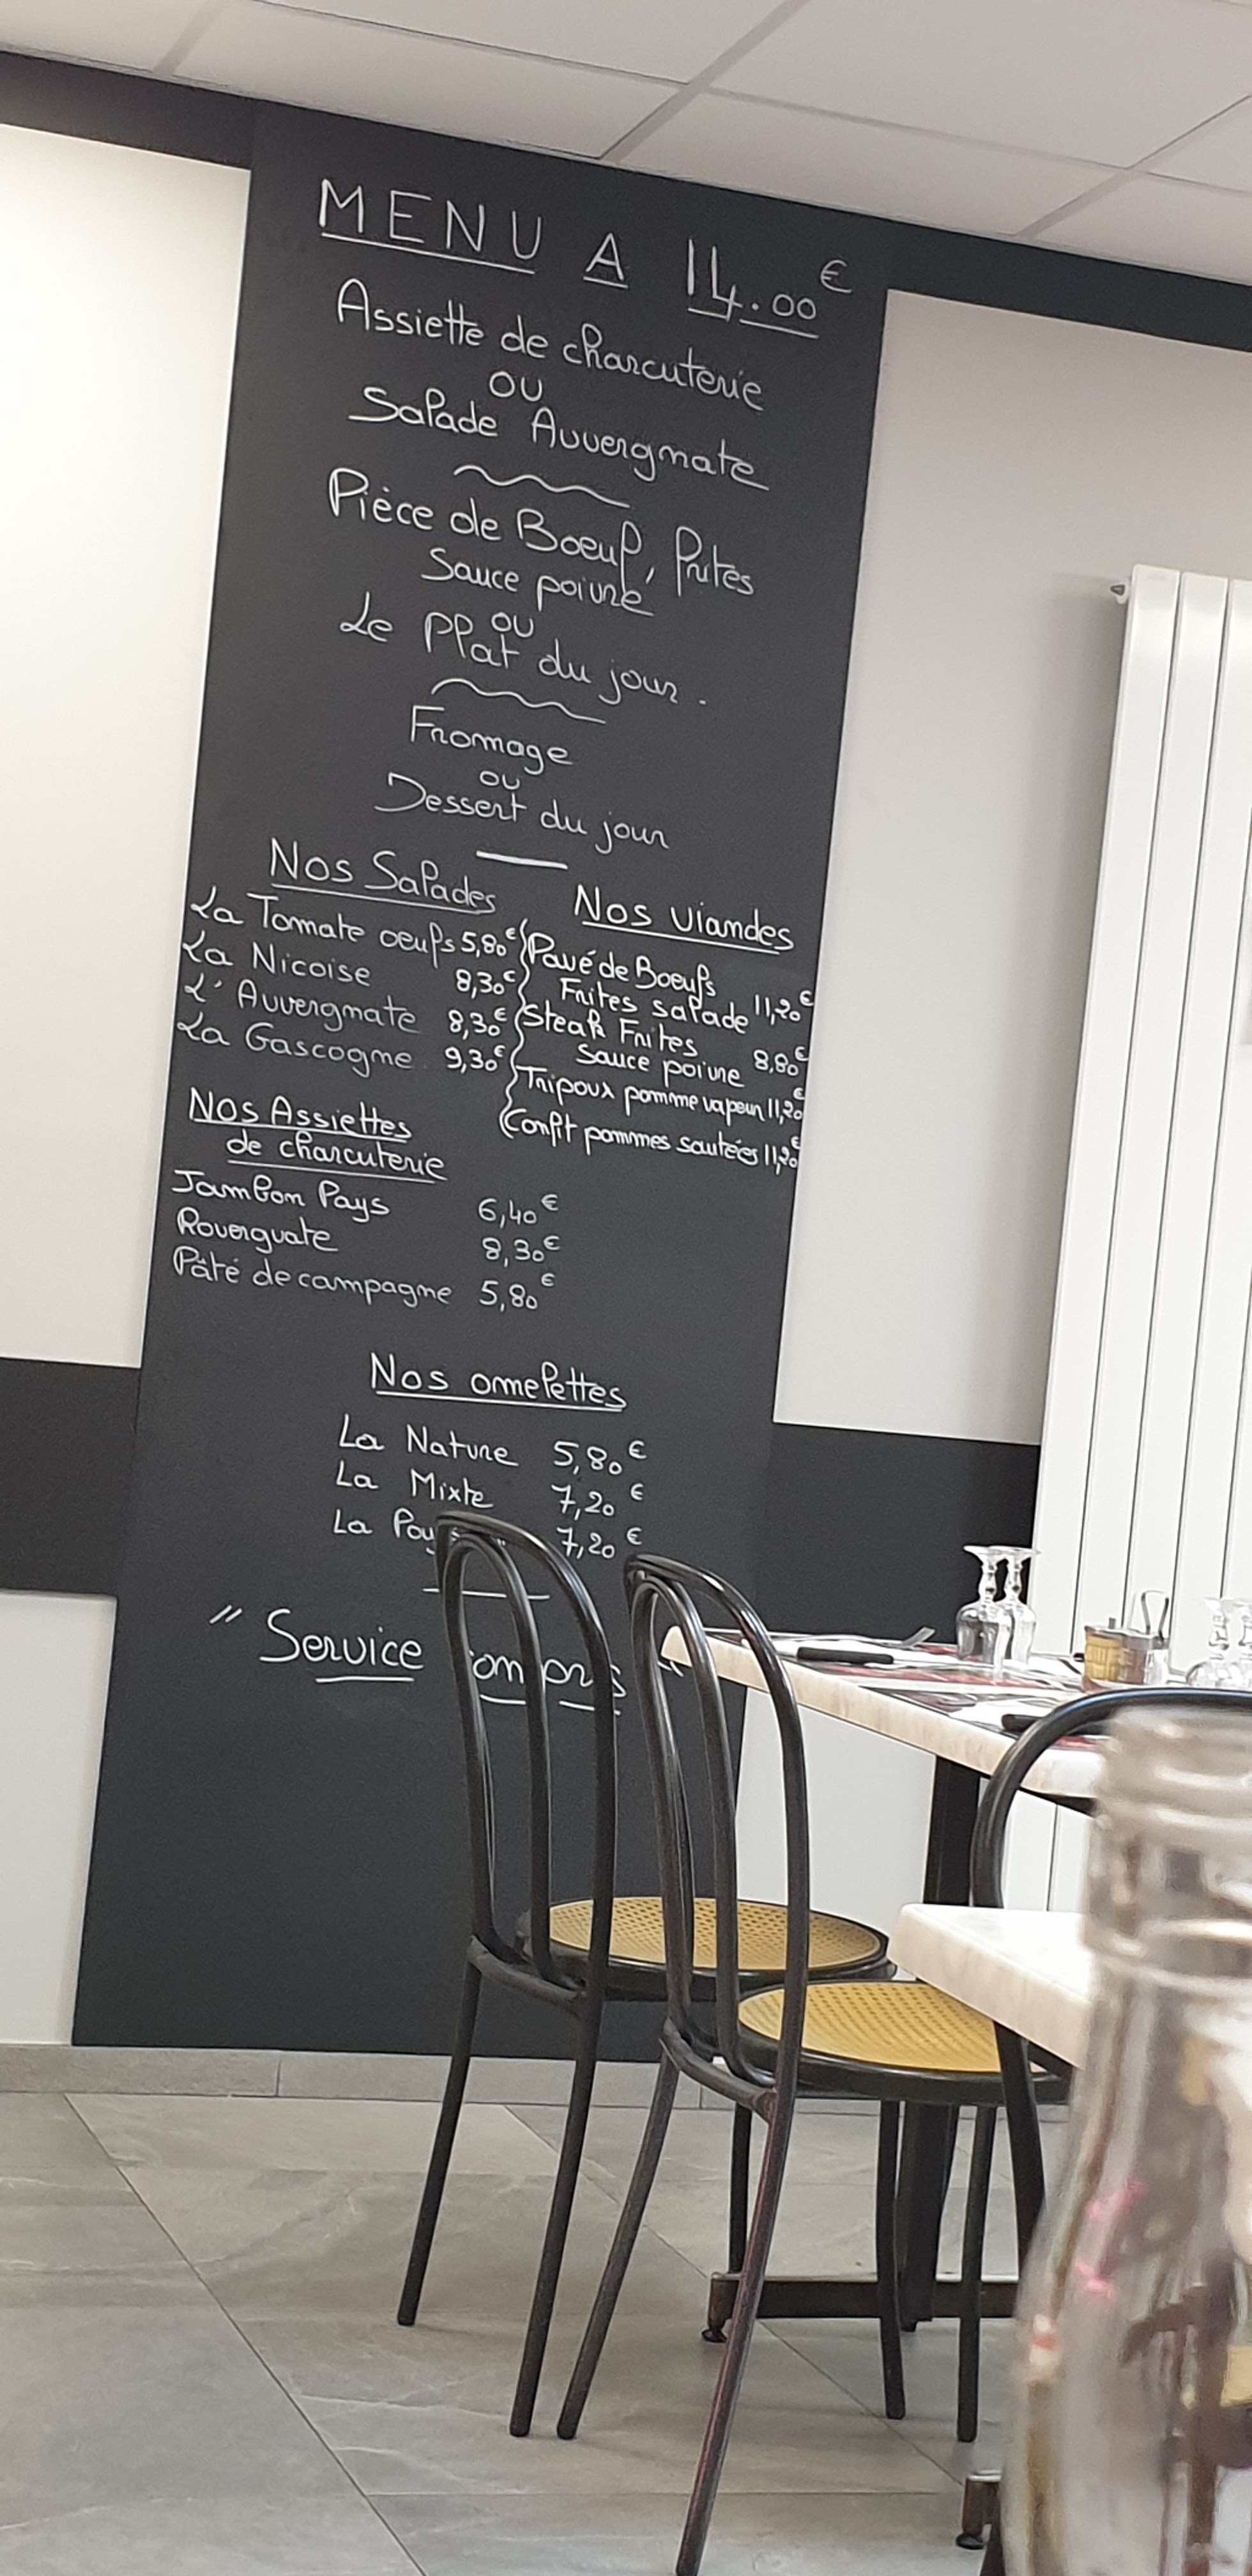 MENU A 14.00€
Assiette de charcuterie
OU
Salade Auvergnate
Pièce de Boeuf, frites
Sauce poivre
ou
Le Plat du jour.
Fromage
ou
Dessert du jour
Nos Salades
La Tomate oeufs 5,80€
La Nicoise 8,30€
L'Auvergnate 8,30€
La Gascogne 9,30€
Nos viandes
Pavé de Boeufs
Frites salade 11,20€
Steak Frites
Sauce poivre 8,80€
Tripoux pomme vapeur 11,20€
Confit pommes sautées 11,20€
Nos Assiettes
de charcuterie
Jambon Pays 6,40€
Rouerguate 8,30€
Pâté de campagne 5,80€
Nos omelettes
La Nature 5,80€
La Mixte 7,20€
La 7,20€
"Service